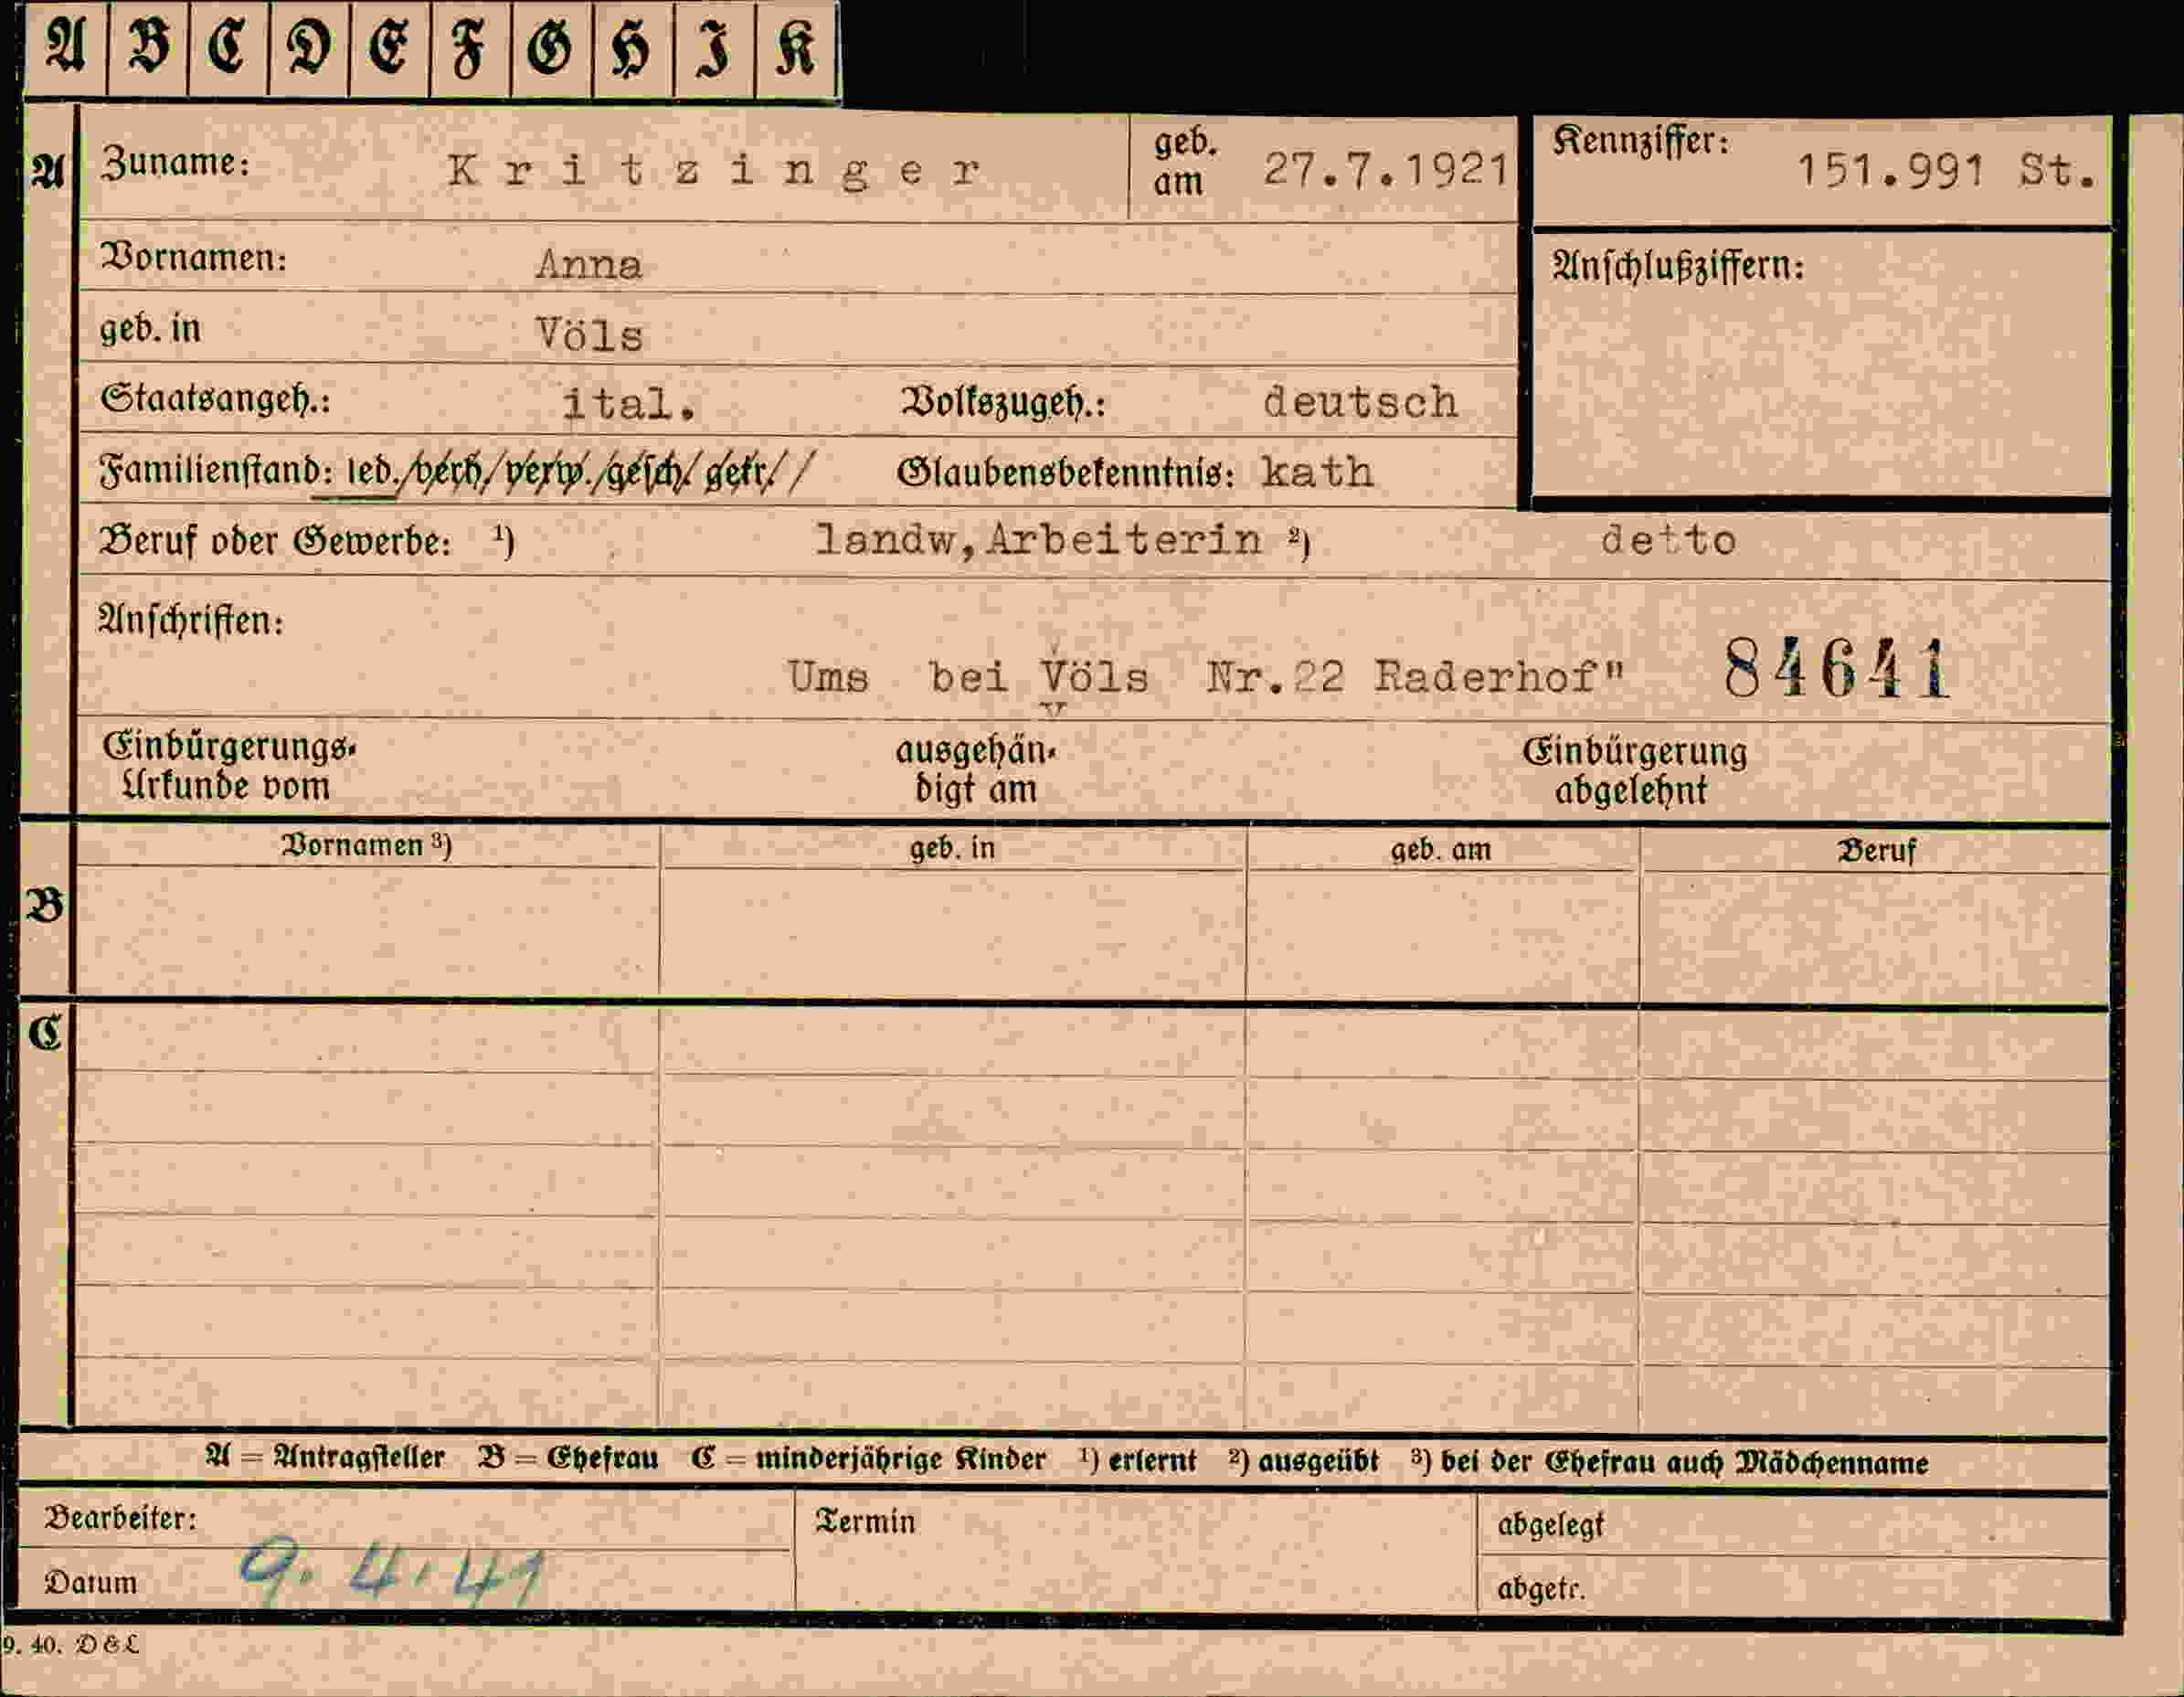 A B C D E F G H I K
A Zuname: Kritzinger geb. am 27.7.1921 Kennziffer: 151.991 St.
Vornamen: Anna Anschlußziffern:
geb. in Völs
Staatsangeh.: ital. Volkszugeh.: deutsch
Familienstand: led./verh/verw./gesch/getr// Glaubensbekenntnis: kath
Beruf oder Gewerbe: 1) landw,Arbeiterin 2) detto
Anschriften:
Ums bei Völs Nr.22 Raderhof" 84641
Einbürgerungs- ausgehän- Einbürgerung
Urkunde vom digt am abgelehnt
Vornamen 3) geb. in geb. am Beruf
B
C
A = Antragsteller B = Ehefrau C = minderjährige Kinder 1) erlernt 2) ausgeübt 3) bei der Ehefrau auch Mädchenname
Bearbeiter: Termin abgelegt
Datum 9.4.41 abgetr.
9. 40. D&L